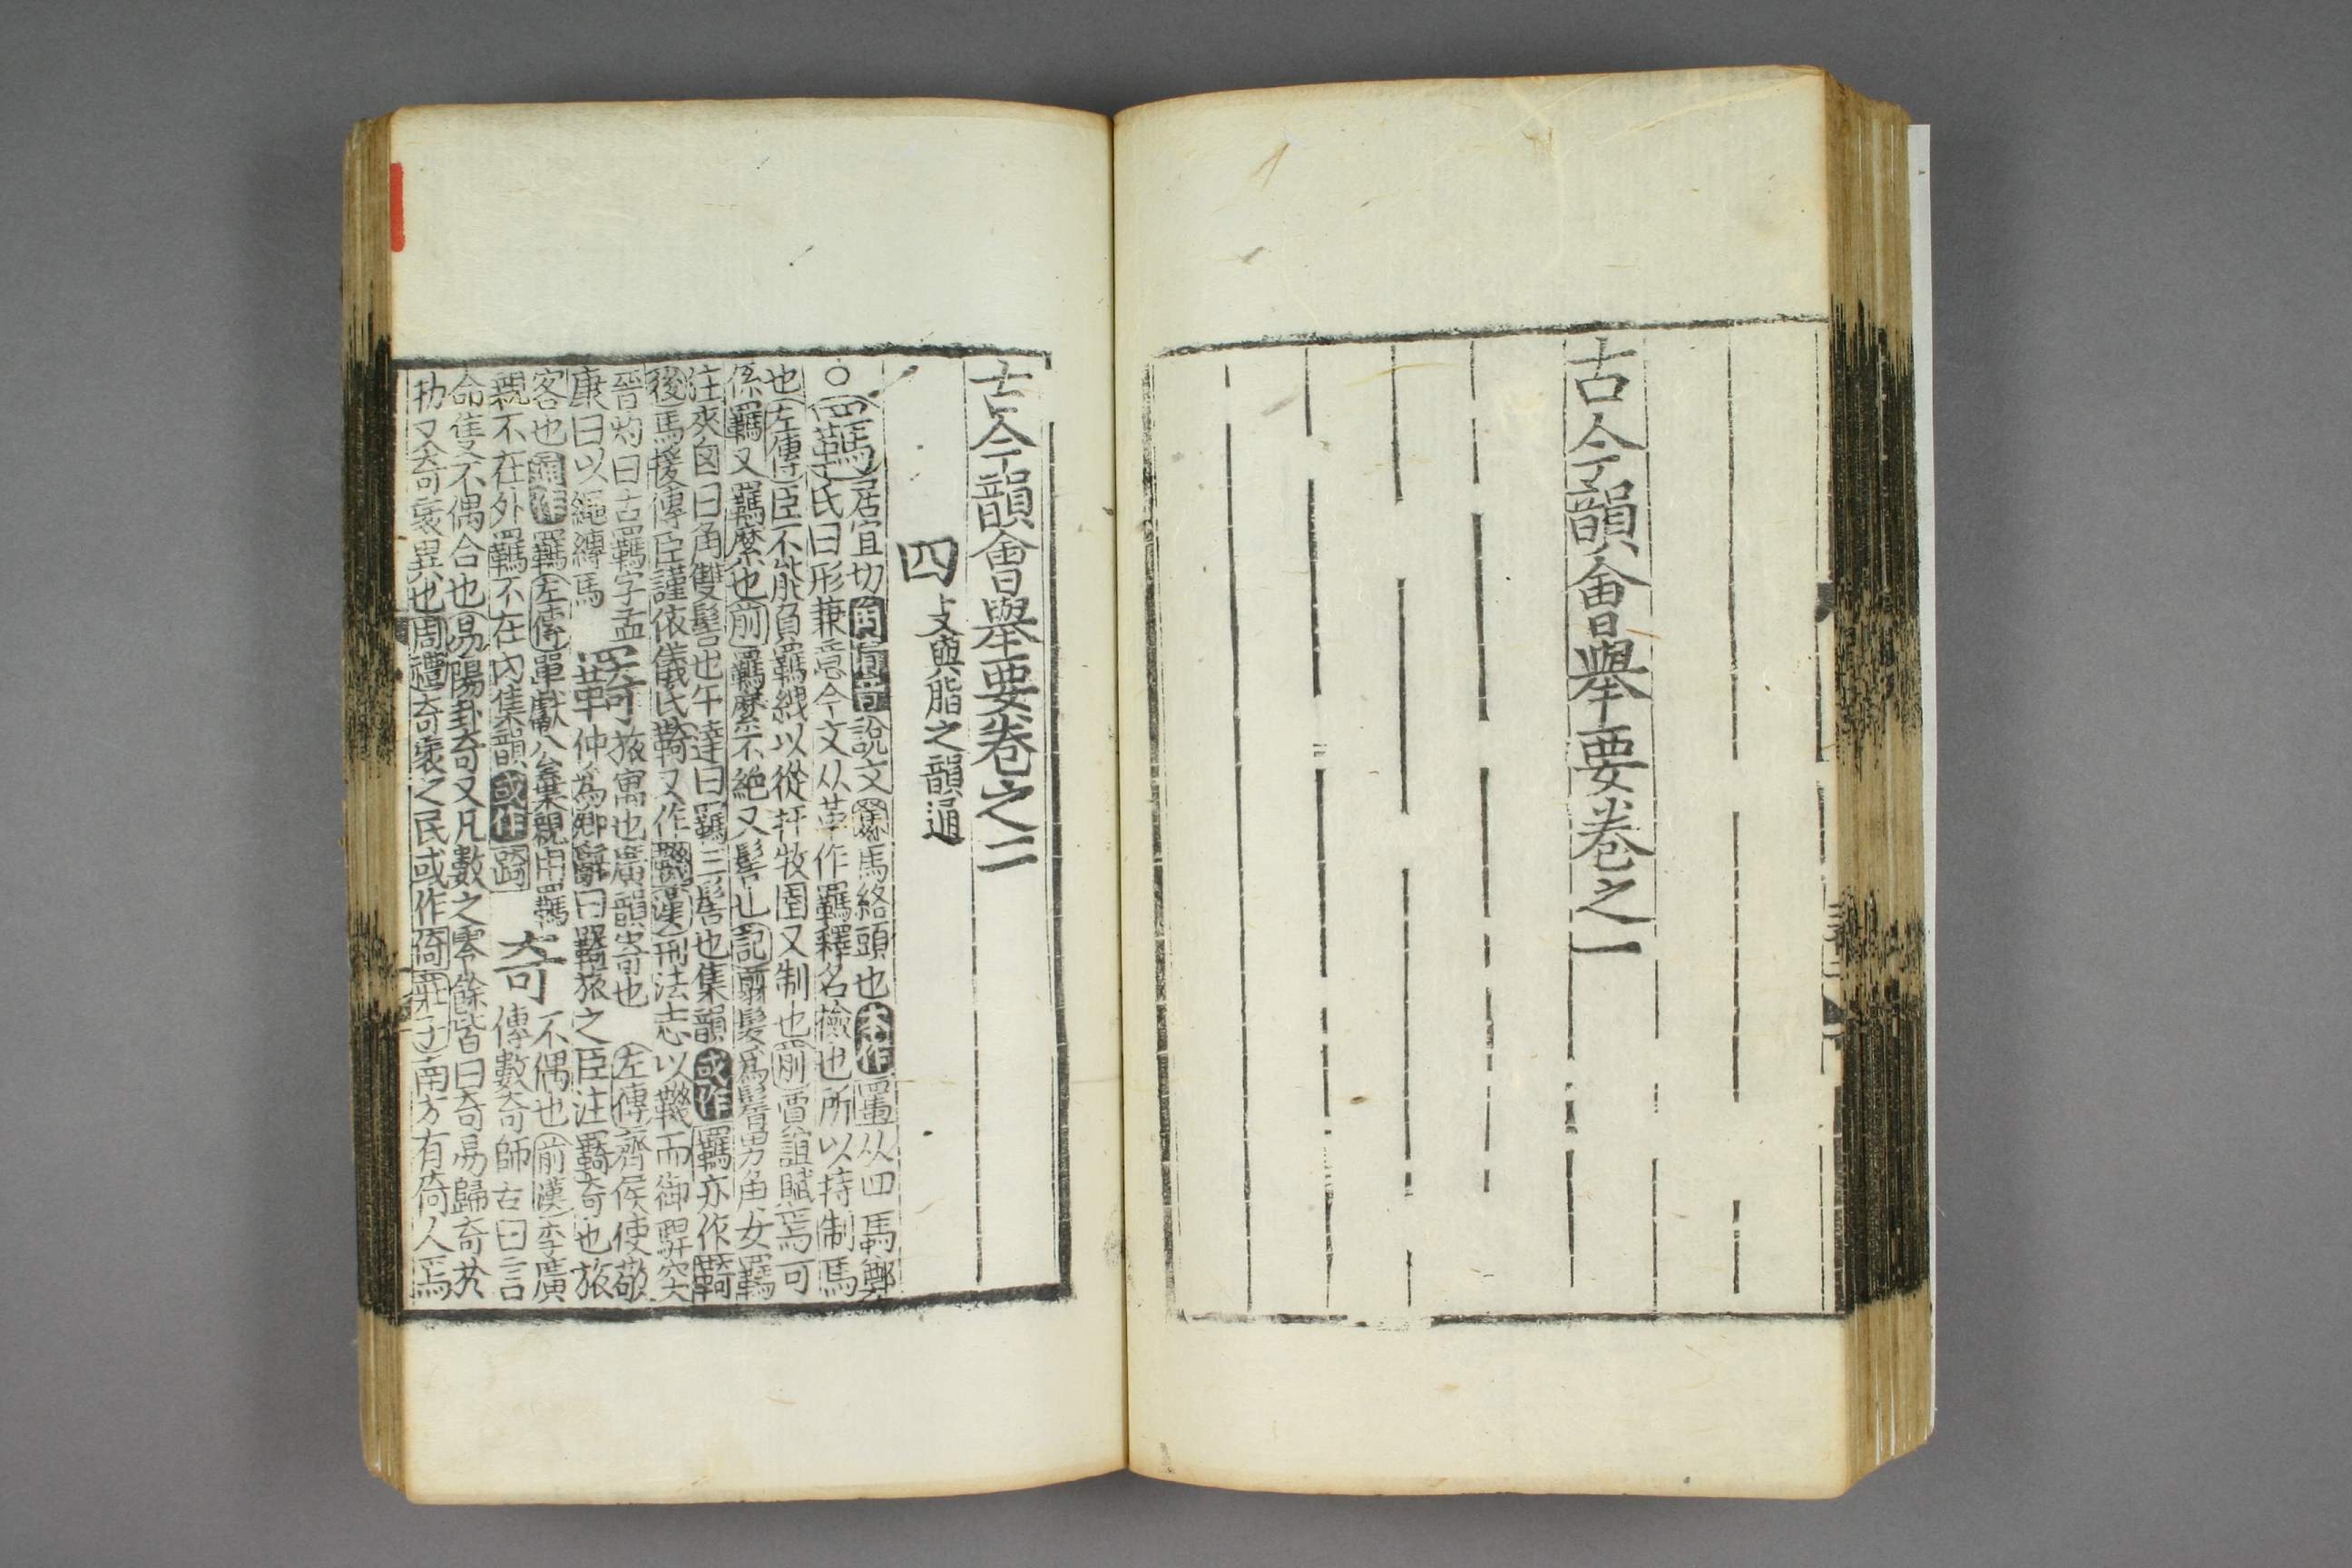 古今韻會舉要卷之一
古今韻會舉要卷之二
四支與脂之韻通
○羈居宜切角清音說文馬絡頭也本作從馬鄭
氏曰形兼意今文从革作羈釋名檢也所以持制馬
也左傳臣不能負羈絏以從扞牧圉又制也前賈誼賦焉可
係羈又羈縻也前羈縻不絕又髻也記翦髮爲鬌男角女羈
注夾囟曰角雙髻也午達曰羈三髻也集韻或作羈亦作羇
後馬援傳臣謹依儀氏䩭又作鞿漢刑法志以鞿而御駻突
晉灼曰古羈字孟
康曰以繩縛馬
羇旅寓也廣韻寄也左傳齊侯使敬
仲為卿辭曰羇旅之臣注羇寄也旅
客也通作羈左傳單獻公棄親用羈
親不在外羈不在內集韻或作踦
奇不偶也前漢李廣
傳數奇師古曰言
命隻不偶合也易陽卦奇又凡數之零餘皆曰奇易歸奇於
扐又奇衺異也周禮奇衺之民或作倚莊子南方有倚人焉